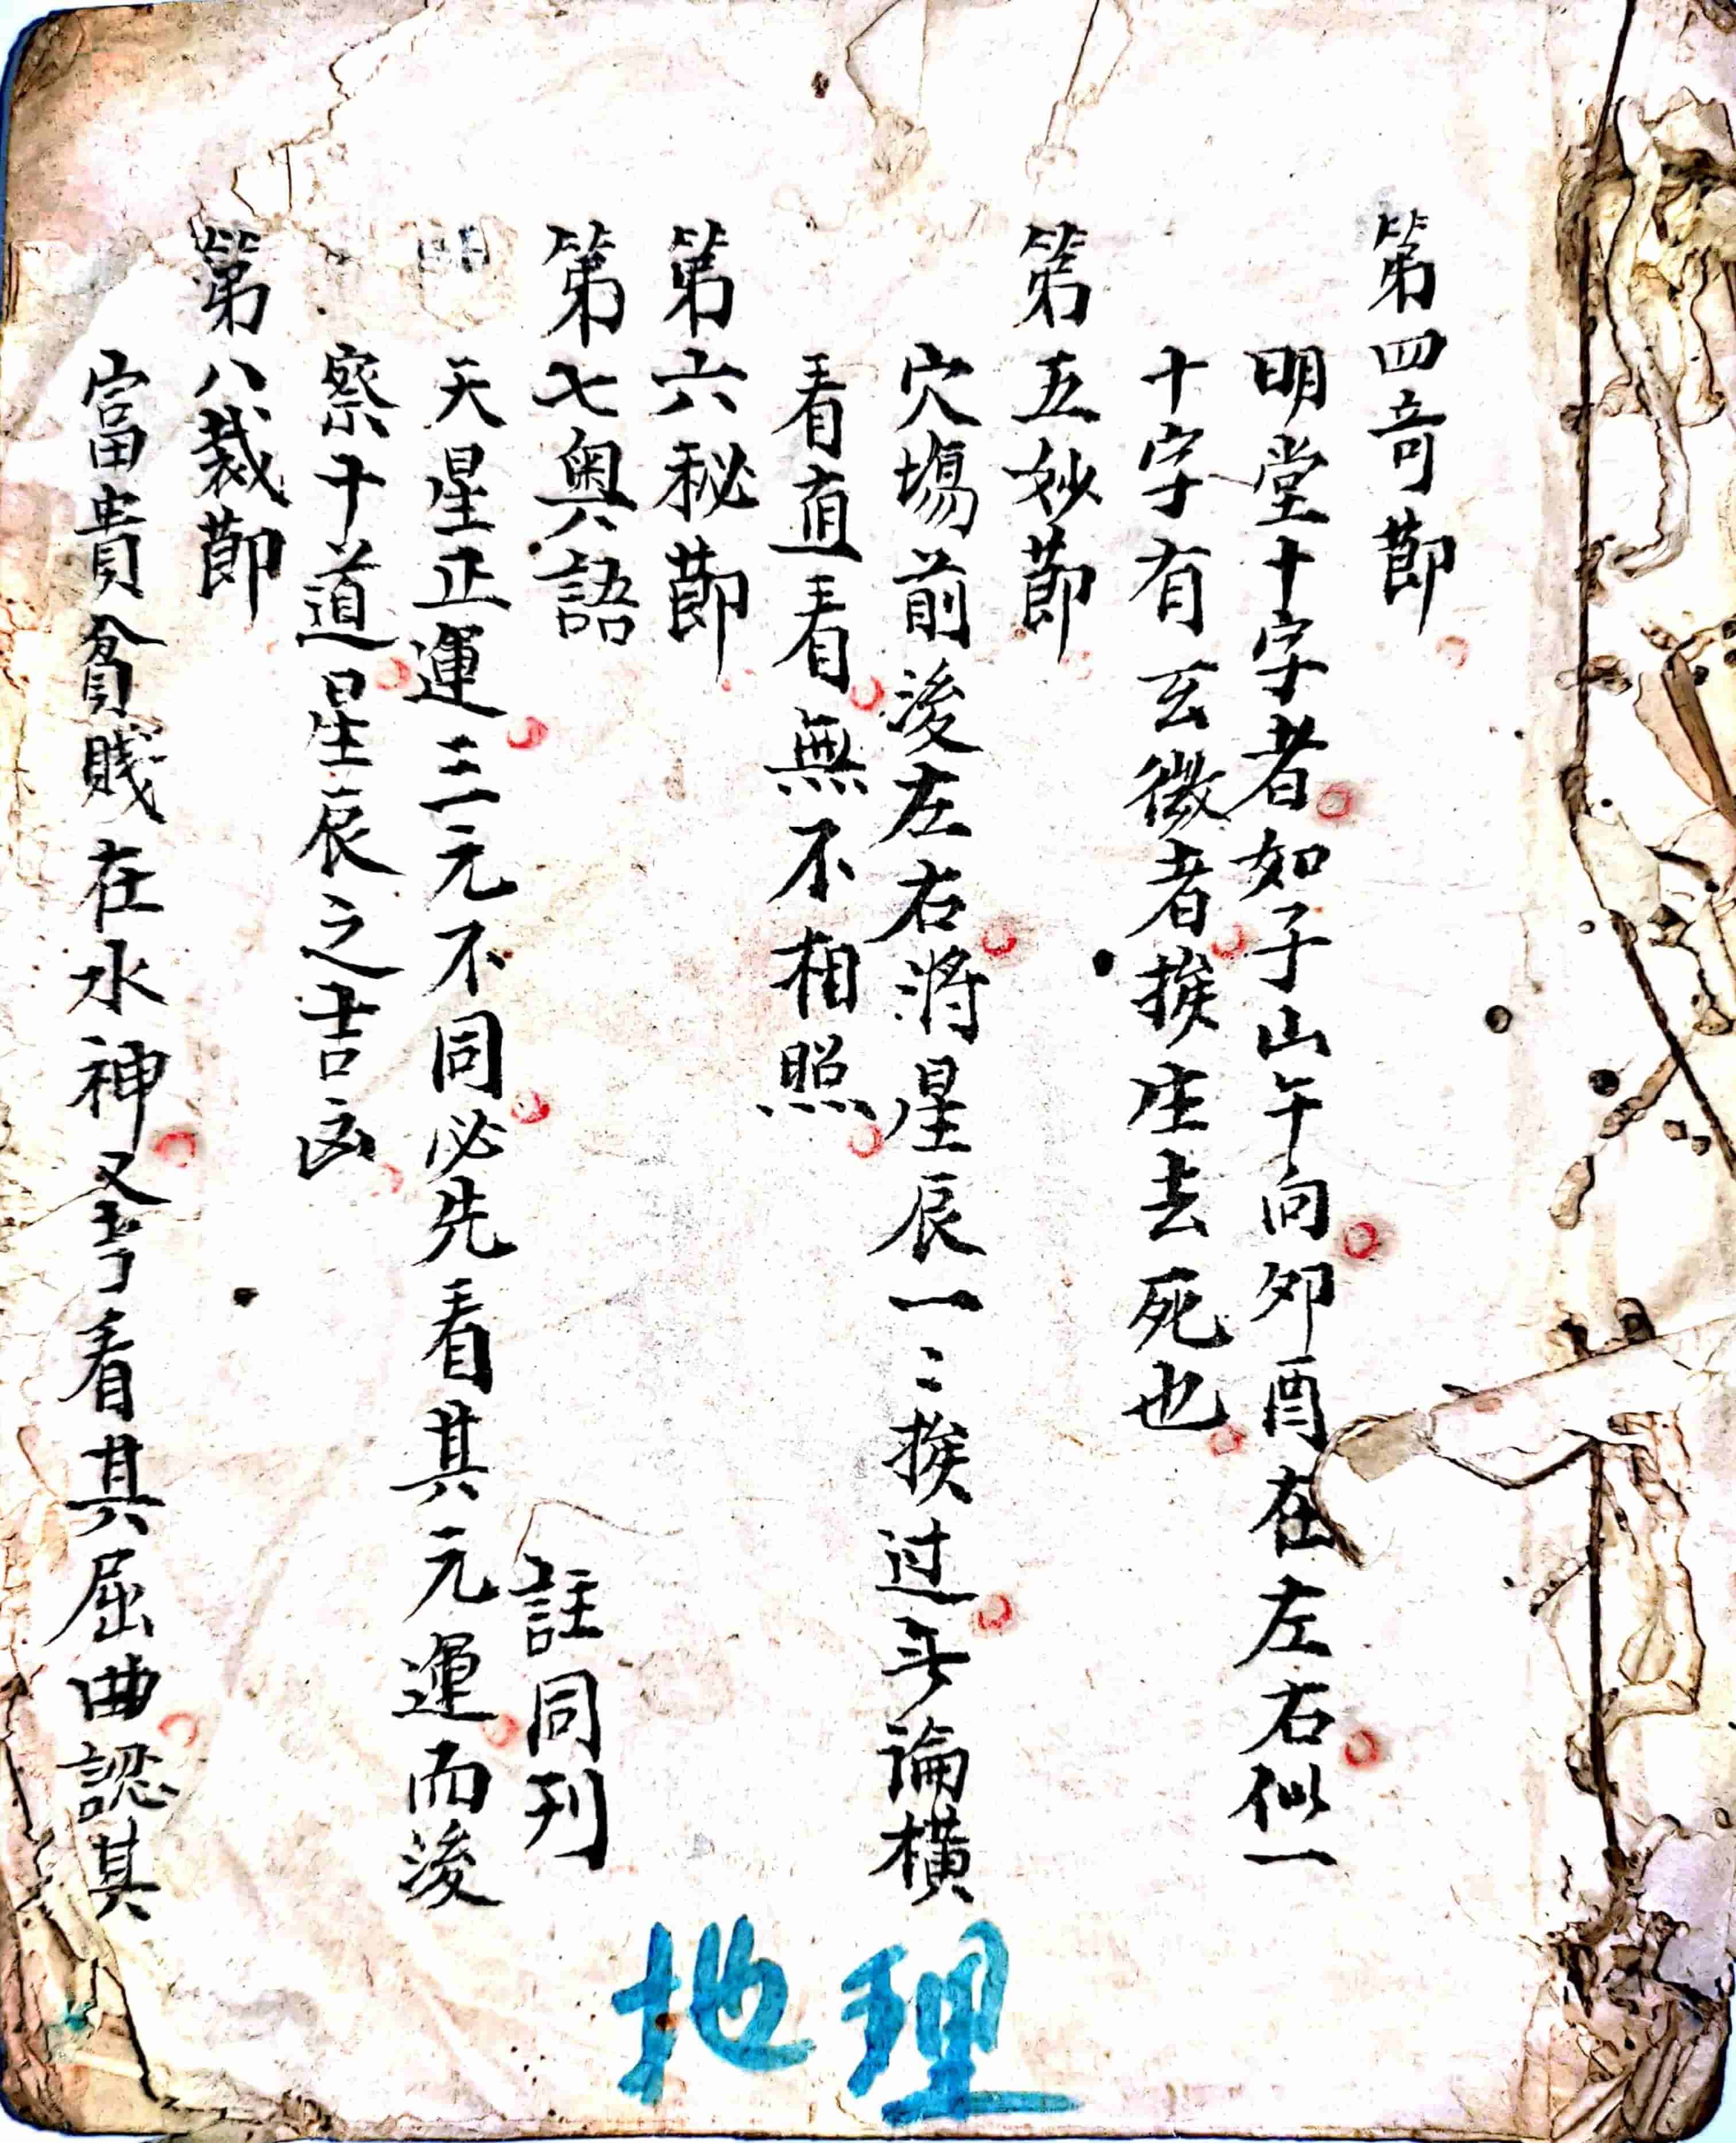 第四奇節
明堂十字者如子山午向夘酉在左右似一
十字有玄微者挨生去死也
第五妙節
穴塲前後左右将星辰一〻挨过無論橫
看直看無不相照
第六秘節
第七奥語
註同刋
天星正運三元不同必先看其元運而後
察十道星辰之吉凶
第八裁節
富貴貧賤在水神又考看其屈曲認其
地理